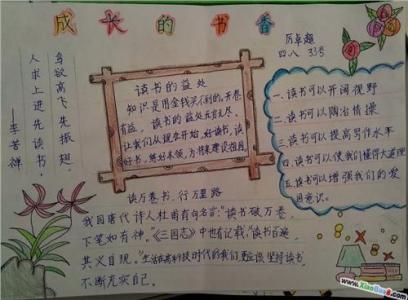 成长的书香
厉卓超
四八 33号
鸟欲高飞先振翅
人求上进先读书
——李苦禅
读书的益处
知识是用金钱买不到的。开卷
有益,读书的益处无穷无尽。
让我们从现在开始,好读书,读
好书,练好本领,为将来建设祖国。
一、读书可以开阔视野
二、读书可以陶冶情操
三、读书可以提高写作水平
四、读书可以使我们懂得大道理
五、读书可以增强我们的爱
国意识。
读万卷书,行万里路
我国唐代诗人杜甫有句名言:"读书破万卷,
下笔如有神。"《三国志》中也有记载:"读书百遍,
其义自现。"生活在高科技时代的我们,更应该"坚持读书",
不断充实自己。
www.XiaoBao8.com